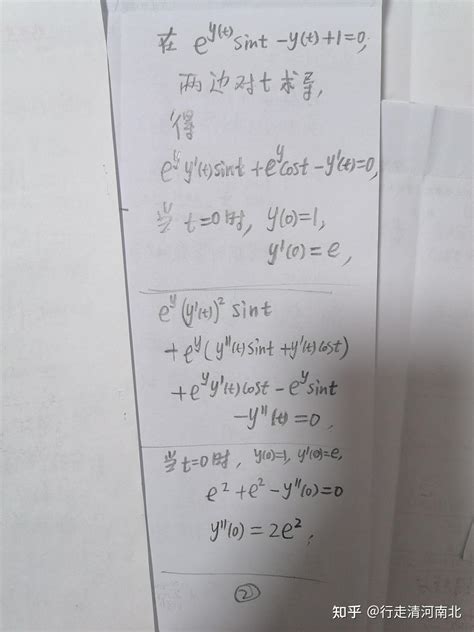 在 e^{y(t)}sint-y(t)+1=0,
两边对t求导,
得
e^y y'(t)sint+e^y cost-y'(t)=0,
当t=0时, y(0)=1,
y'(0)=e,
e^y(y'(t))^2 sint
+e^y(y''(t)sint+y'(t)cost)
+e^y y'(t)cost-e^y sint
-y''(t)=0,
当t=0时, y(0)=1, y'(0)=e,
e^2+e^2-y''(0)=0
y''(0)=2e^2,
②
知乎 @行走清河南北